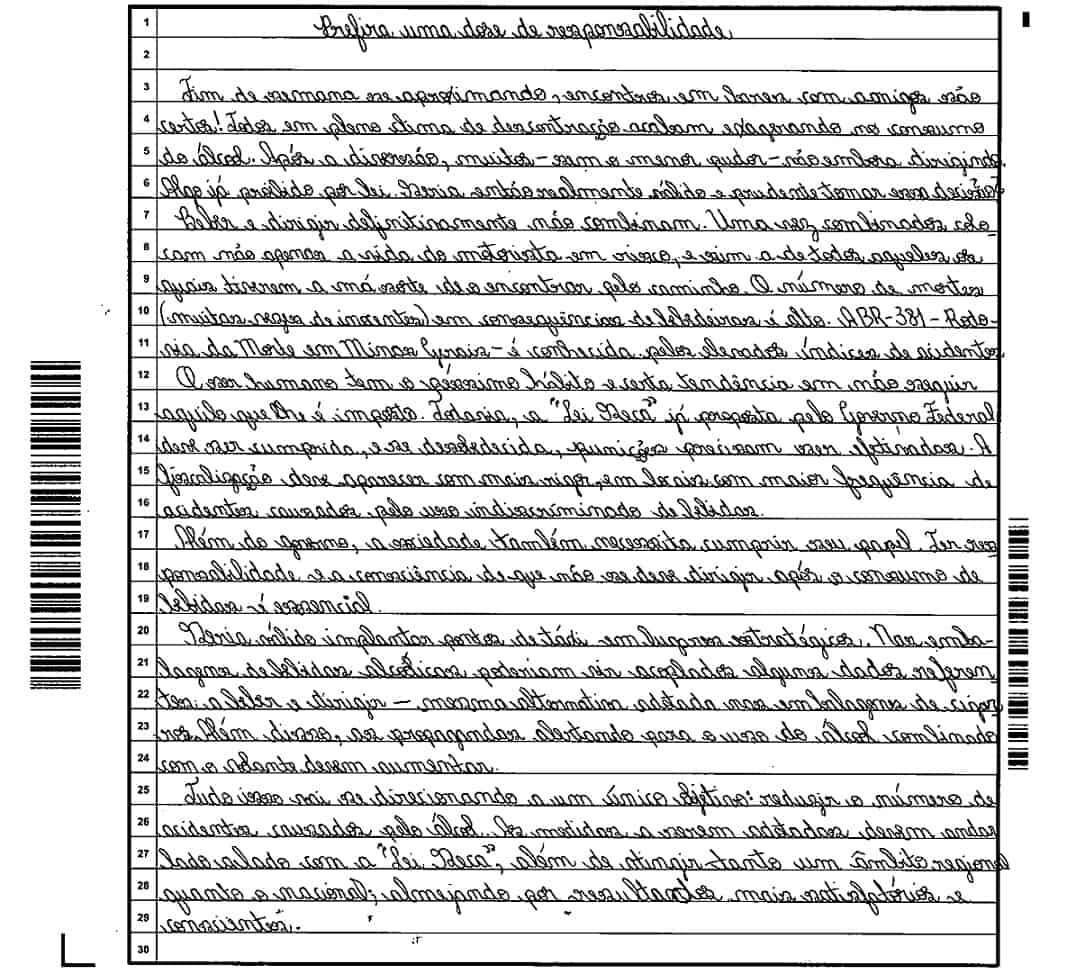 1 Prefira uma dose de responsabilidade
2
3 Fim de semana se aproximando, encontros em bares com amigos são
4 certos! Todos em pleno clima de descontração acabam exagerando no consumo
5 do álcool. Após a diversão, muitos - sem o menor pudor - vão embora dirigindo.
6 Algo já proibido por lei. Seria então realmente válido e prudente tomar essa decisão?
7 Beber e dirigir definitivamente não combinam. Uma vez combinados colo-
8 cam não apenas a vida do motorista em risco, e sim a de todos aqueles os
9 quais tiverem a má sorte de o encontrar pelo caminho. O número de mortes
10 (muitas vezes de inocentes) em consequências de bebedeiras é alto. A BR-381 - Rodo-
11 via da Morte em Minas Gerais - é conhecida pelos elevados índices de acidentes.
12 O ser humano tem o péssimo hábito e certa tendência em não seguir
13 aquilo que lhe é imposto. Todavia, a "Lei Seca" já proposta pelo Governo Federal
14 deve ser cumprida, e se desobedecida, punições precisam ser efetivadas. A
15 fiscalização deve aparecer com mais rigor, em locais com maior frequência de
16 acidentes causados pelo uso indiscriminado de bebidas.
17 Além do governo, a sociedade também necessita cumprir seu papel. Ter res-
18 ponsabilidade e a consciência de que não se deve dirigir após o consumo de
19 bebidas - é essencial.
20 Seria válido implantar pontos de táxi em lugares estratégicos. Nas emba-
21 lagens de bebidas alcoólicas poderiam vir acoplados alguns dados referen
22 tes a beber e dirigir - mesma alternativa adotada nas embalagens de cigar
23 ros. Além disso, as propagandas alertando para o uso do álcool combinado
24 com o volante devem aumentar.
25 Tudo isso vai se direcionando a um único objetivo: reduzir o número de
26 acidentes causados pelo álcool. As medidas a serem adotadas devem andar
27 lado a lado com a "Lei Seca", além de atingir tanto um âmbito regional
28 quanto o nacional; almejando por resultados mais satisfatórios e
29 conscientes.
30